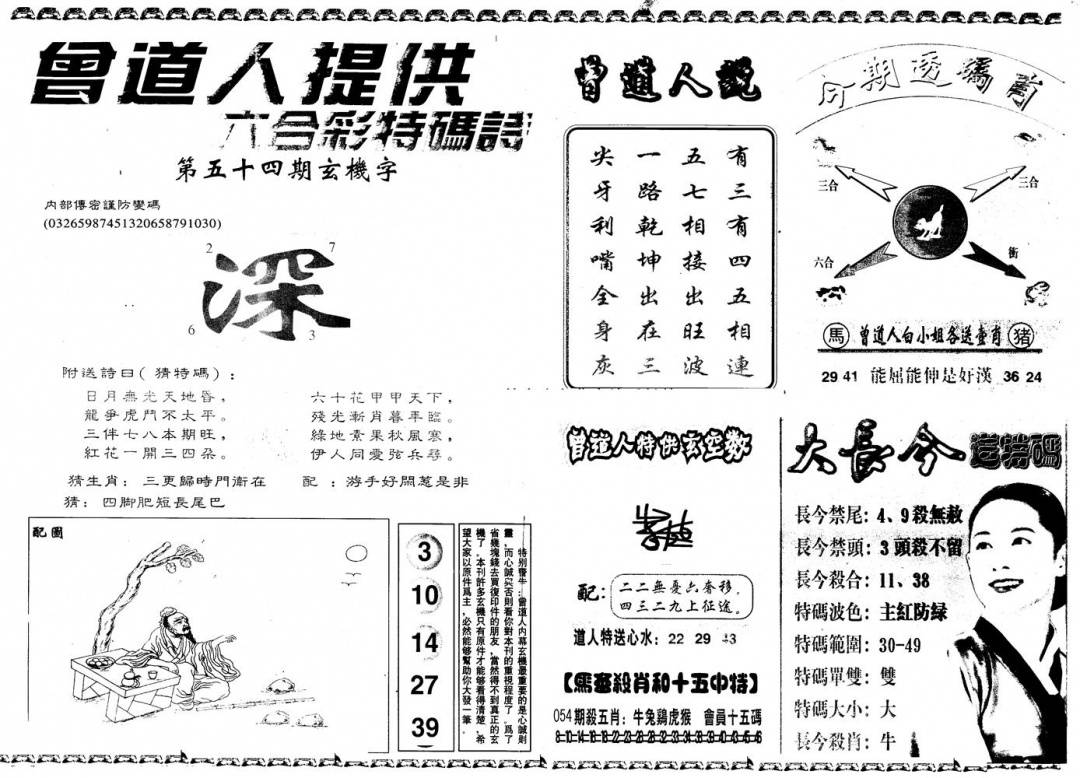 曾道人提供
六合彩特碼詩
第五十四期玄機字
內部傳密謹防變碼
(03265987451320658791030)
2
7
深
6
3
附送詩曰(猜特碼):
日月無光天地昏,
龍爭虎鬥不太平。
三伴七八本期旺,
紅花一開三四朵。
六十花甲甲天下,
殘光漸肖暮年臨。
綠地素果秋風寒,
伊人同愛弦兵尋。
猜生肖: 三更歸時門衛在
配 :游手好閑惹是非
猜: 四脚肥短長尾巴
配圖
3
10
14
27
39
特別醫牛:曾道人內幕玄機最重要的是心誠則
靈,而心誠实否則看你對本刊的重視程度了。爲了
省幾塊錢去買復印件的朋友,當然得不到真正的玄
機了。本刊許多玄機只有原件才能够看得清楚,希
望大家以原件爲主,必然能够幫助你大發一筆。
曾道人說
有三有四五相連
五七相接出旺波
一路乾坤出在三
尖牙利嘴全身灰
今期透碼肖
三合
三合
六合
衝
馬
曾道人白小姐各送壹肖
猪
29 41 能屈能伸是好漢 36 24
曾道人特供玄空数
配:
二二無憂六奢移,
四三二九上征途。
道人特送心水: 22 29 43
【馬經殺肖和十五中特】
054期殺五肖: 牛兔鷄虎猴 會員十五碼
大長今 送特碼
長今禁尾: 4、9殺無赦
長今禁頭: 3頭殺不留
長今殺合: 11、38
特碼波色: 主紅防绿
特碼範圍: 30-49
特碼單雙: 雙
特碼大小: 大
長今殺肖: 牛